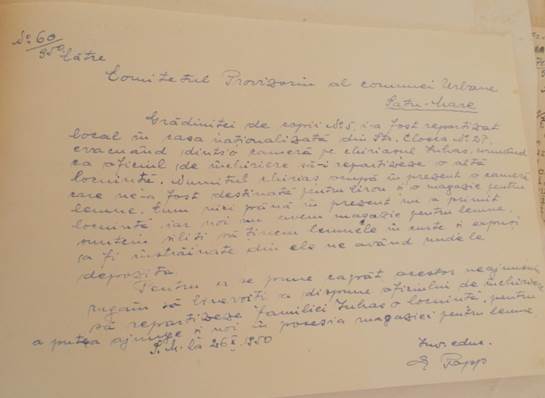 No 60
950
Către
Comitetul Provizoriu al comunei Urbane
Satu-Mare
Grădiniței de copii No 5, i-a fost repartizat
local în casa naționalizată din str. Cloșca No 67.
evacuând dintr'o cameră pe chiriașul Iuhas, urmând
ca oficiul de închiriere să-i repartizeze o altă
locuință. Numitul chiriaș ocupă în prezent o cameră
care ne-a fost destinată pentru birou și o magazie pentru
lemne. Cum nici până în prezent nu a primit
locuință, iar noi nu avem magazie pentru lemne,
suntem siliți să ținem lemnele în curte și expuși
a fi înstrăinate din ele ne având unde le
depozita.
Pentru a se pune capăt acestor neajunsuri
rugăm să binevoiți a dispune oficiului de închiriere
să repartizeze familiei Iuhas o locuință, pentru
a putea ajunge și noi în posesia magaziei pentru lemne
S.M. la 26 I 950
Înv. educ.
Papp